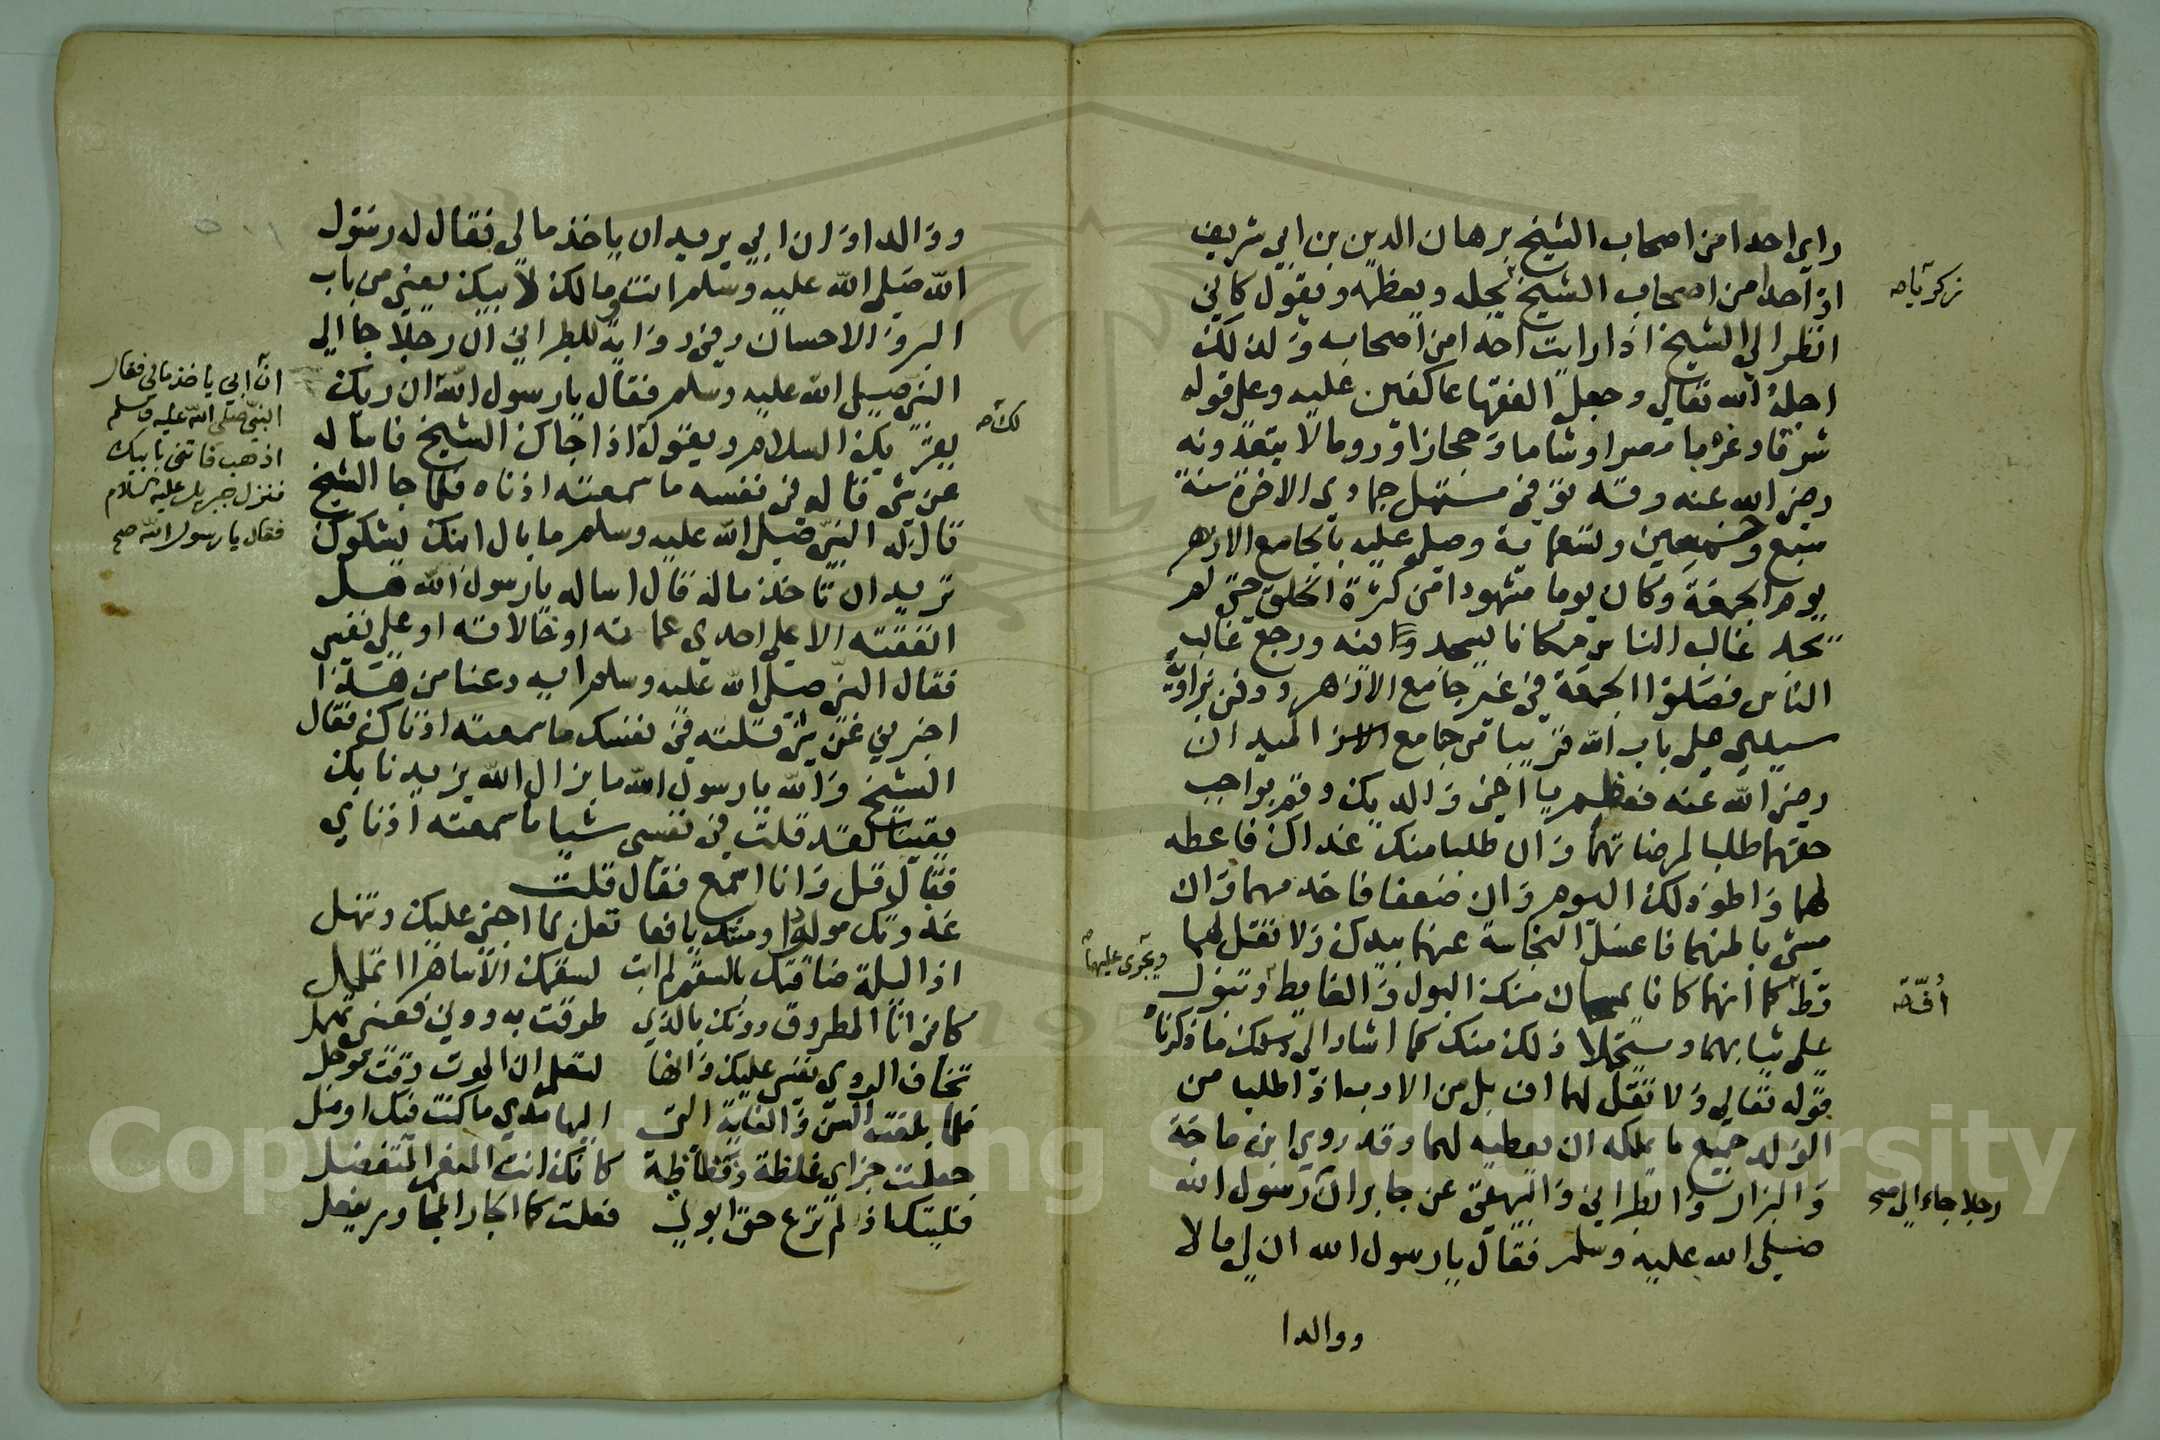 راي احدا من اصحاب الشيخ برهان الدين بن ابي شريف
زكريا صح
اذ احدا من اصحاب الشيخ يجله ويعظمه ويقول كاني
انظر الي الشيخ اذا رايت احدا من اصحابه ولذلك
اجله الله تعالي وجعل الفقها عاكفين عليه وعلي قوله
شرقا وغربا مصرا وشاما وحجازا وروما لا يتعدونه
رضي الله عنه وقد توفي في مستهل جمادي الاخرة سنة
سبع وخمسين وتسعماية وصلي عليه بالجامع الازهر
يوم الجمعة وكان يوما مشهودا من كثرة الخلق حتي لم
يجد غالب الناس مكانا يسجد فيه ورجع غالب
الناس فصلوا الجمعة في غير جامع الازهر ودفن بزاوية
سيدي علي باب الله قريبا من جامع الميدان
رضي الله عنه فعظم يا اخي والديك وقم بواجب
حقهما طلبا لمرضاتهما وان طلبا منك غداك فاعطه
لهما واطو ذلك اليوم وان ضعفا فاخدمهما وان
مشي باطنهما فاغسل النجاسة عنهما بيدك ولا تقل لهما
أفّ صح
قط كما انهما كانا منك البول والغايط وتبول
ويخري عليهما
علي ثيابهما ويستحملا ذلك منك كما اشار الي ما ذكرناه
قوله تعالي ولا تقل لهما اف بل من الادب اذا طلبا من
الولد جميع ما يملكه ان يعطيه لهما وقد روي ابن ماجة
والبزار والطبراني والبيهقي عن جابر ان رسول الله
رجلا جاء الي صح
صلي الله عليه وسلم فقال يا رسول الله ان لي مالا
ووالدا
ووالدا وان ابي يريد ان ياخذ مالي فقال له رسول
الله صلي الله عليه وسلم انت ومالك لابيك يعني من باب
البر والاحسان وفي رواية للطبراني ان رجلا جا الي
النبي صلي الله عليه وسلم فقال يا رسول الله ان ربك
ان ابي ياخذ مالي فقال
النبي صلي الله عليه وسلم
اذهب فاتني بابيك
فنزل جبريل عليه السلام
فقال يا رسول الله صح
يقريك السلام ويقول اذا جاك الشيخ فاساله
لك صح
عن شي قاله في نفسه ما سمعته اذناه فلما جا الشيخ
قال له النبي صلي الله عليه وسلم ما بال ابنك يشكوك
تريد ان تاخذ ماله قال اساله يا رسول الله هل
انفقته الا علي احدي عماته او خالاته او علي نفسي
فقال النبي صلي الله عليه وسلم ايه دعنا من هذا
اخبرني عن شي قلته في نفسك ما سمعته اذناك فقال
الشيخ والله يا رسول الله ما يزال الله يزيدنا بك
يقينا لقد قلت في نفسي شيا ما سمعته اذناي
فقال قل وانا اسمع فقال قلت
غذوتك مولودا ومنتك يافعا تعل بما اجني عليك وتنهل
اذا ليلة ضاقتك بالسقم لم ابت لسقمك الا ساهرا اتململ
كاني انا المطروق دونك بالذي طرقت به دوني فعيني تهمل
تخاف الردي نفسي عليك وانها لتعلم ان الموت وقت موجل
فلما بلغت السن والغاية التي اليها مدي ما كنت فيك اومل
جعلت جزاي غلظة وفظاظة كانك انت المنعم المتفضل
فليتك اذ لم ترع حق ابوتي فعلت كما الجار المجاور يفعل
Copyright © King Saud University